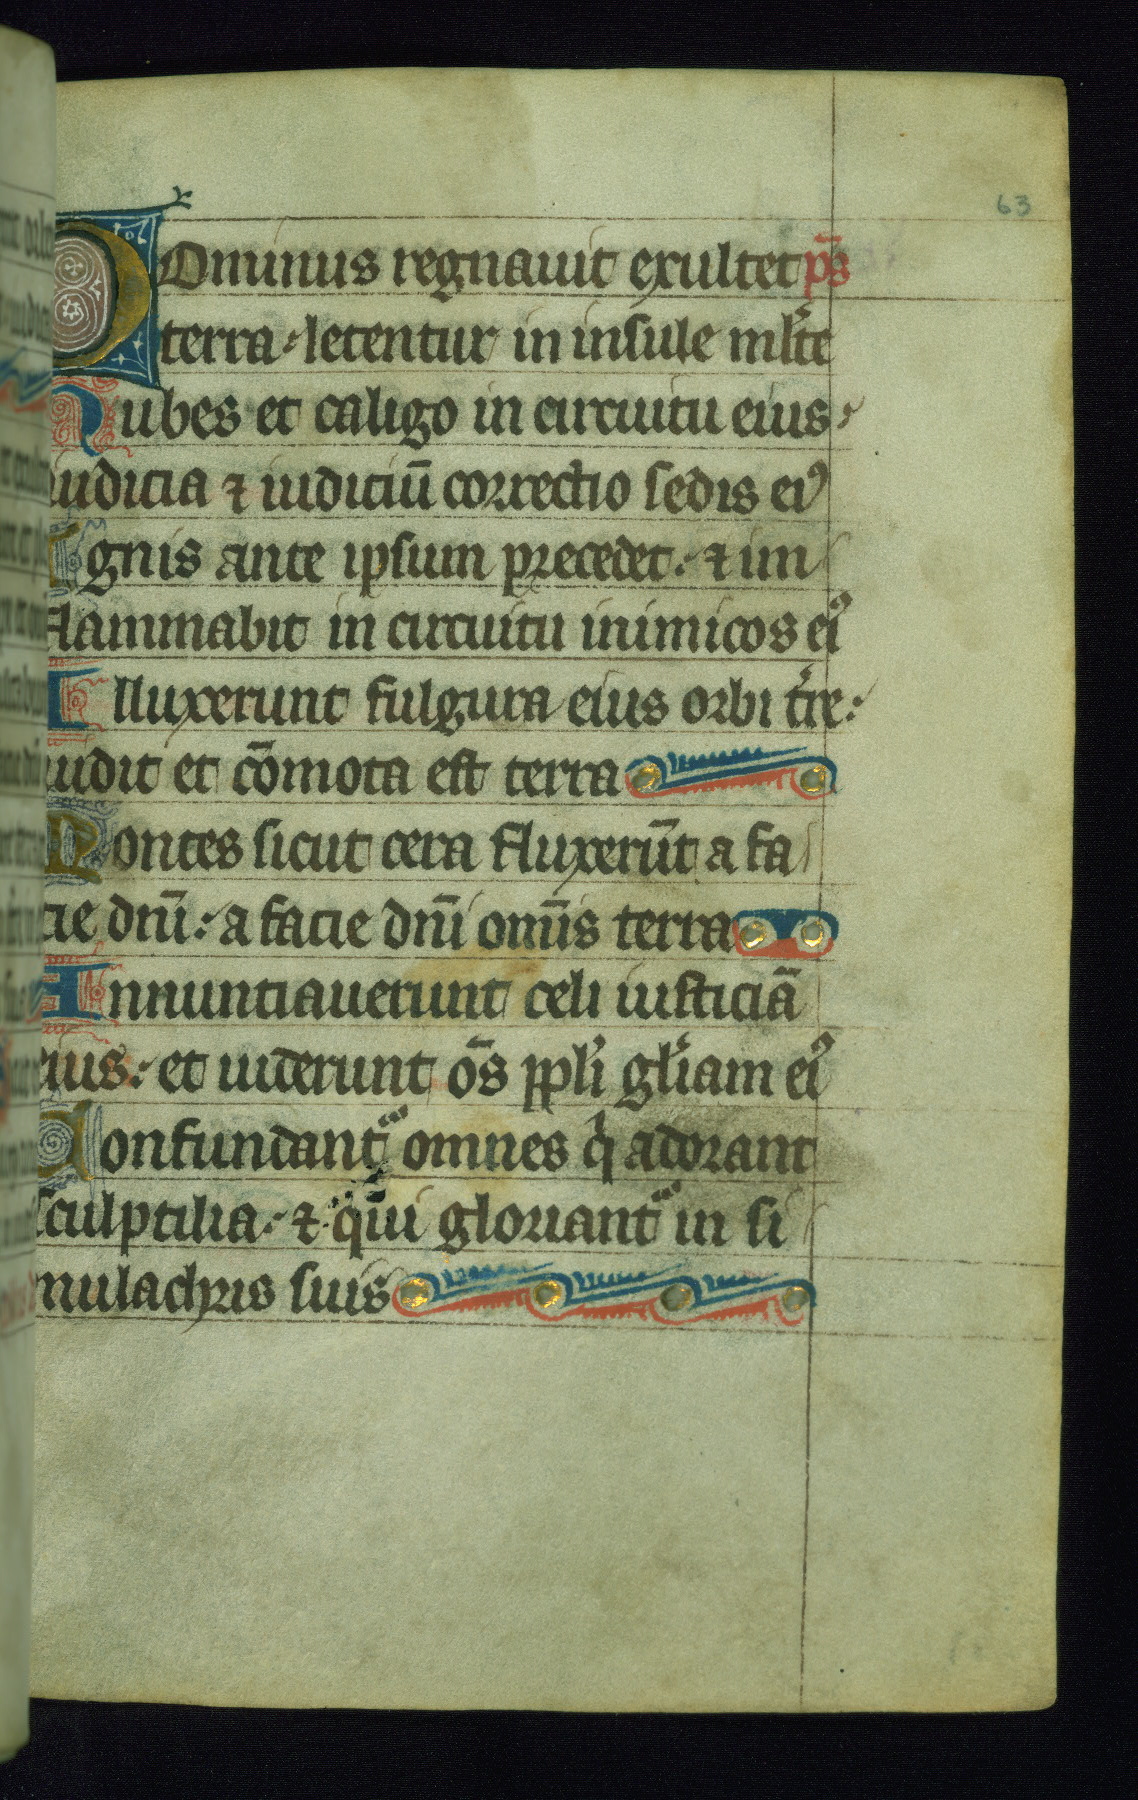 63
Dominus regnauit exultet ps̄
terra letentur in insule ml̓te
Nubes et caligo in circuitu eius
iudicia ⁊ iudiciū correctio sedis eiꝰ
Ignis ante ipsum precedet: ⁊ in
flammabit in circuitu inimicos eiꝰ
Illuxerunt fulgura eius orbi t̓re:
uidit et cōmota est terra
Montes sicut cera fluxerūt a fa
cie dn̄i: a facie dn̄i om̄is terra
Annuntiauerunt celi iusticiā
eius: et uiderunt ōs ppl̓i gl̓iam eiꝰ
Confundant᷑ omnes qͥ adorant
sculptilia: ⁊ qui gloriant᷑ in si
mulachris suis